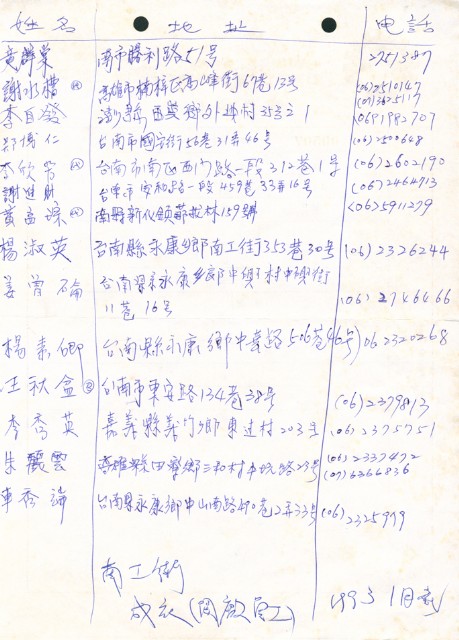 姓名 地址 電話
黃 南市勝利路51號 2751387
謝水櫃 高雄市楠梓區 街67巷12號 (06)2510147
(07)3625117
李自發 澎 西 鄉外垵村 069982707
仁 台南市國安街56巷31弄46号 (06)2500648
李欣 台南市南區西門路一段312巷1号 (06)2602190
謝進財 台南市安和路一段459巷33弄16号 (06)2464713
黃 南縣新化鎮 林159號 (06)5911279
楊淑英 台南縣永康鄉南工街353巷30号 (06)2326244
姜曾 台南縣永康乡 中 村中 街
11巷16号 (06)2746466
楊素卿 台南縣永康鄉中 路506巷46号 06 2320268
王秋 台南市東安路134巷38号 (06)2379813
李秀英 嘉義縣義竹鄉東过村203号 (06)2375751
朱麗雲 高雄縣田寮鄉三和村 路23号 (06)2337472
(07)6366836
車秀 台南縣永康鄉中山南路490巷2弄33号 (06)2325979
南工街
成衣(関廠員工) 1993 1月